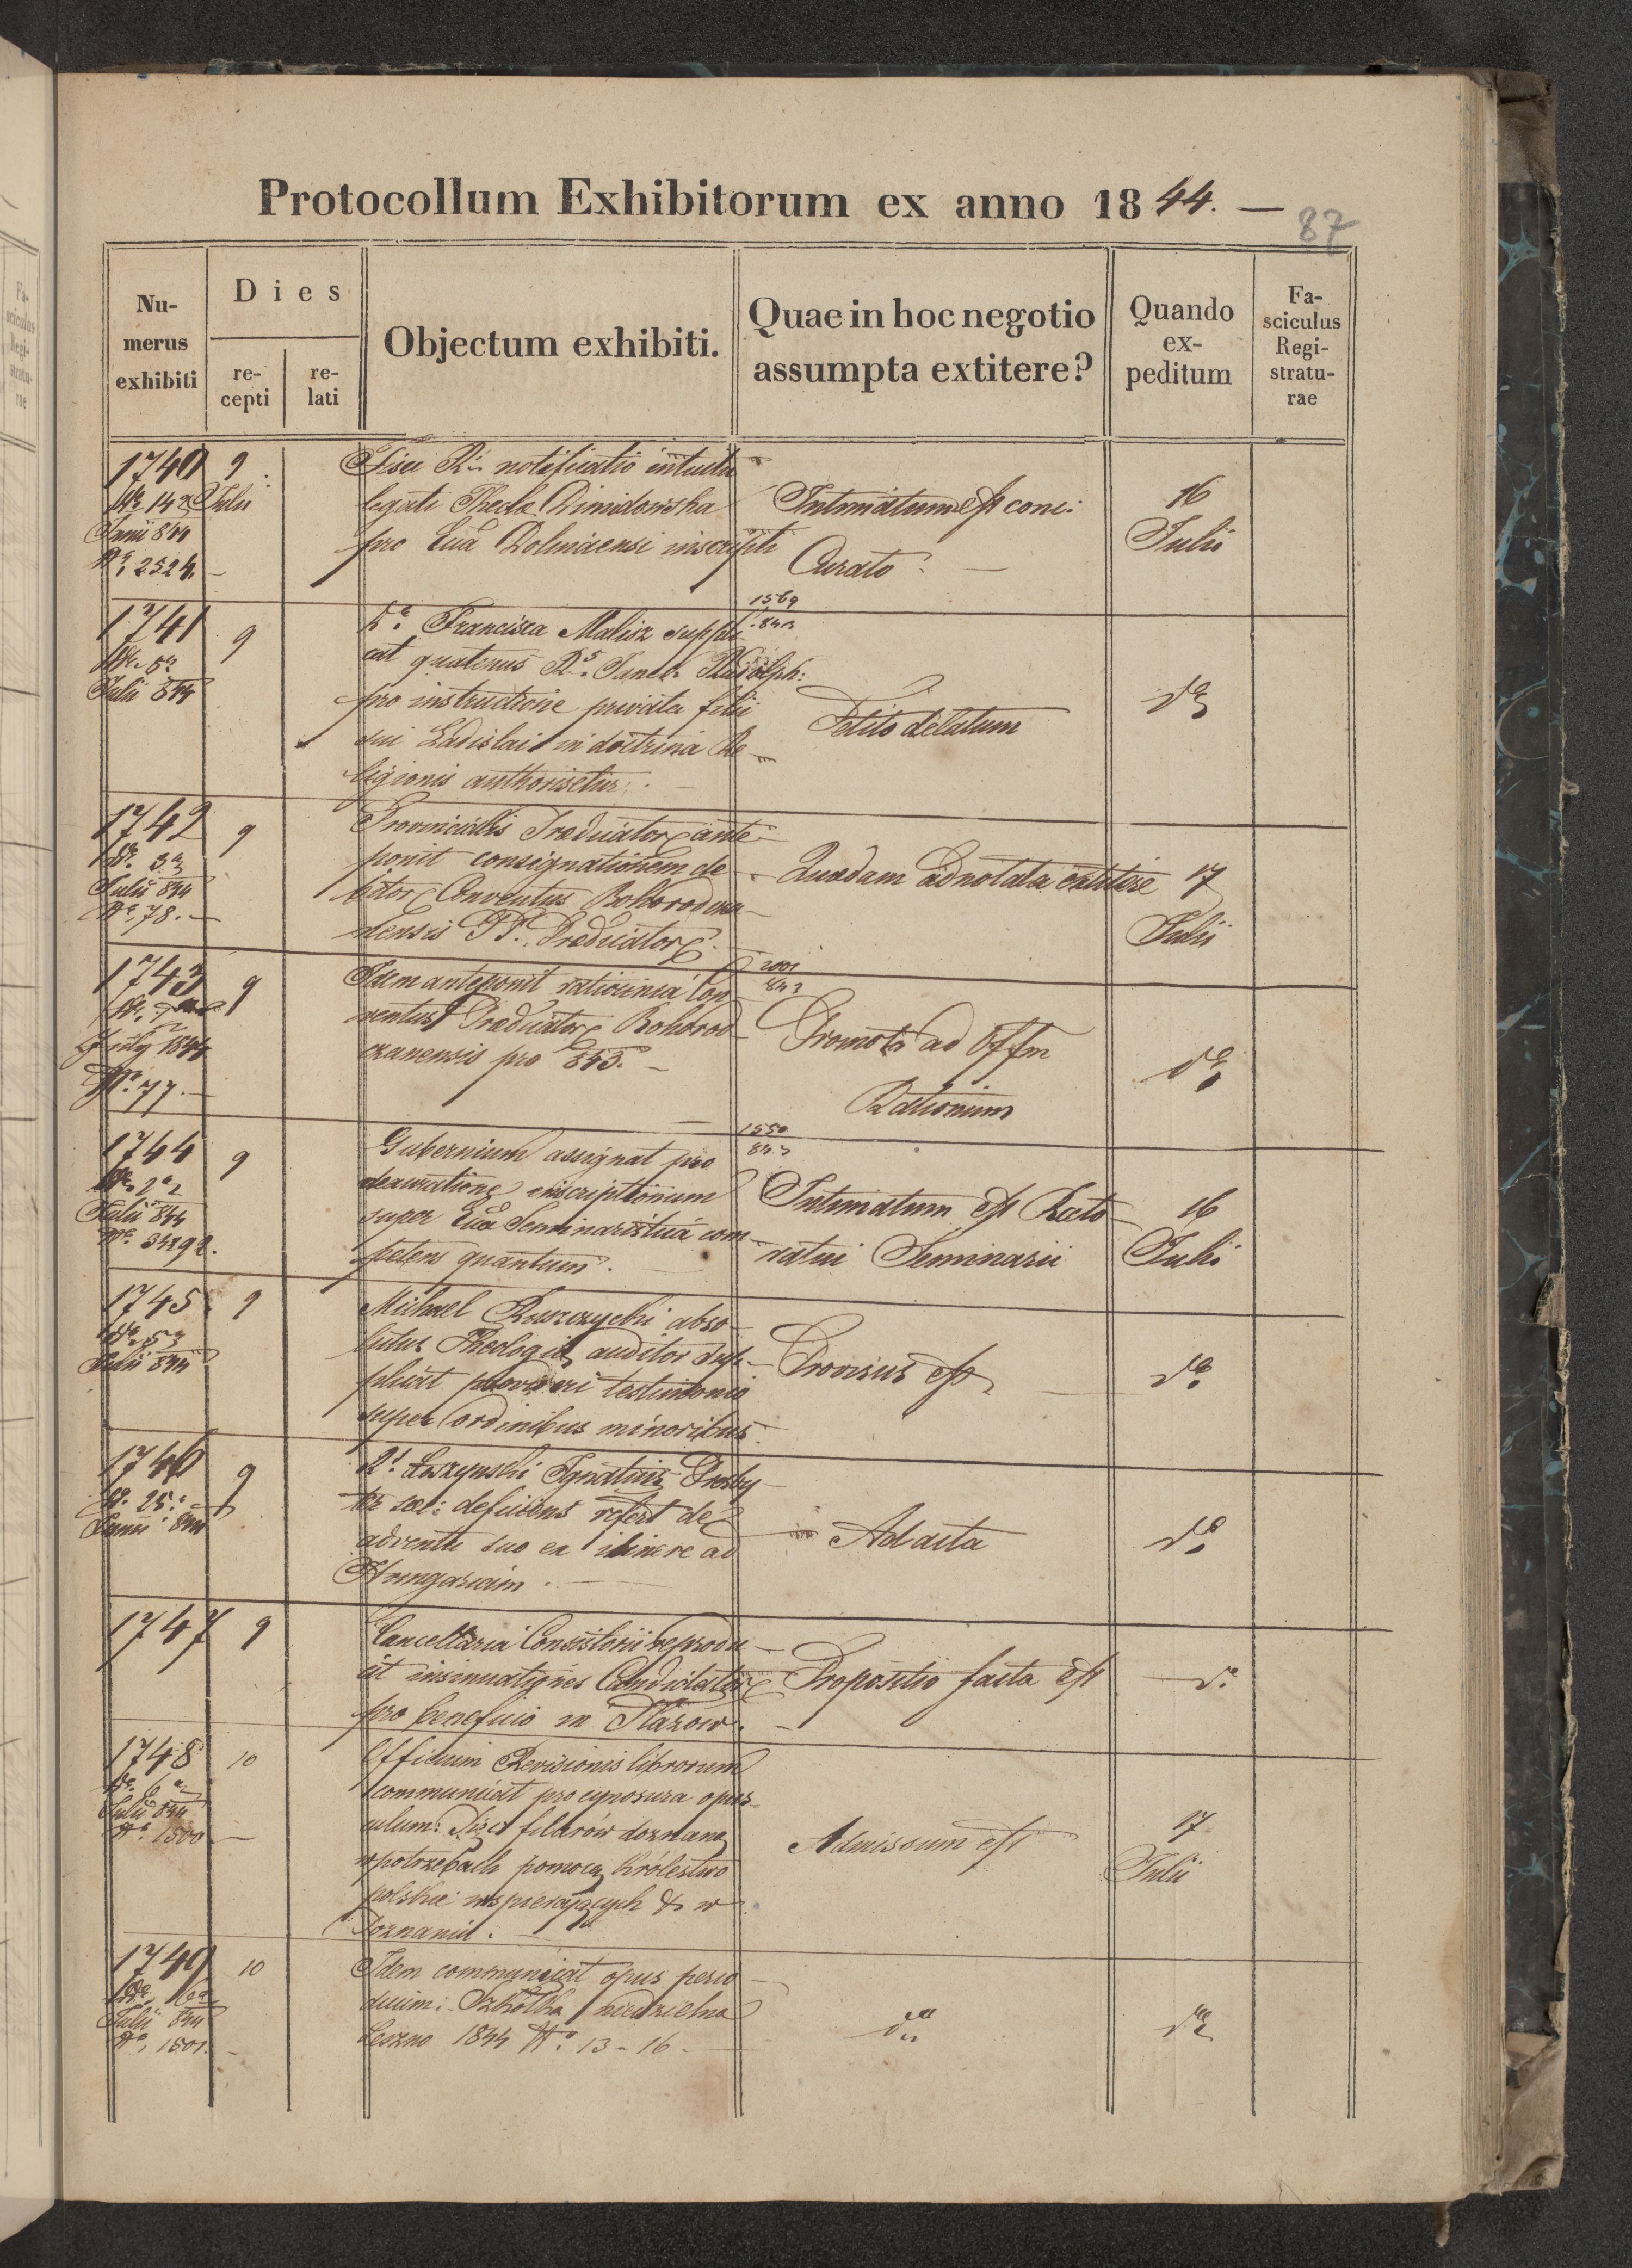 Protocollum Exhibitorum ex anno 1844. —
87
Nu-
merus
exhibiti
Dies
re-
cepti
re-
lati
Objectum exhibiti.
Quae in hoc negotio
assumpta extitere?
Quando
ex-
peditum
Fa-
sciculus
Regi-
stratu-
rae
1740 9
Julii
Junii 844
No. 2524.
Fisci notificatio intuitu
legati Thecla
pro Ecca inscripti
Intimatum est conc:
Curato. —
16
Julii
1741 9
Julii 844
Francisca Malisz suppli-
cat quatenus
pro instructione privata filii
sui Ladislai in doctrina Re-
ligionis authorisetur.
1569
843
Petito delatum
do
1742 9
de 3a
Julii 844
No. 78. —
Provincialis Praedicator ante-
ponit consignationem de-
bitor Conventus Bohorodcza-
nensis PP. Praedicator.
Quaedam adnotata extitere
17
Julii
1743 9
July 1844
No. 77. —
Idem anteponit ratiocinia Con-
ventus Praedicator Bohorod-
czanensis pro 843. —
2001
843
Promota ad Offm
Rationum
do
1744 9
de 2a
Julii 844
No. 34292.
Gubernium assignat pro
deauratione inscriptionum
super Ecca Seminaristica com-
petens quantum.
1550
843
Intimatum est Recto-
ratui Seminarii
16
Julii
1745 9
de 5a
Julii 844
Michael abso-
lutus Theologiae auditor sup-
plicat provideri testimonio
super ordinibus minoribus.
Provisus est
do
1746 9
d. 25.
Junii 844
Ignatius Presby-
ter deficiens refert de
adventu suo ex itinere ad
Hungariam.
Ad acta
do
1747 9
Cancellaria Consistorii reprodu-
cit insinuationes Candidator
pro beneficio in Płazow.
Propositio facta est
do
1748 10
de 6a
Julii 844
No. 1500 —
Officium Revisionis librorum
communicat pro cynosura opus-
culum: Pięć filarów doznaną
w potrzebach pomocą Królestwo
polskie wspierających & w
Poznaniu.
Admissum est
17
Julii
1749 10
de 6a
Julii 844
No. 1501. —
Idem communicat opus perio-
dicum: Szkółka niedzielna
Leszno 1844 No. 13 - 16. —
do
do